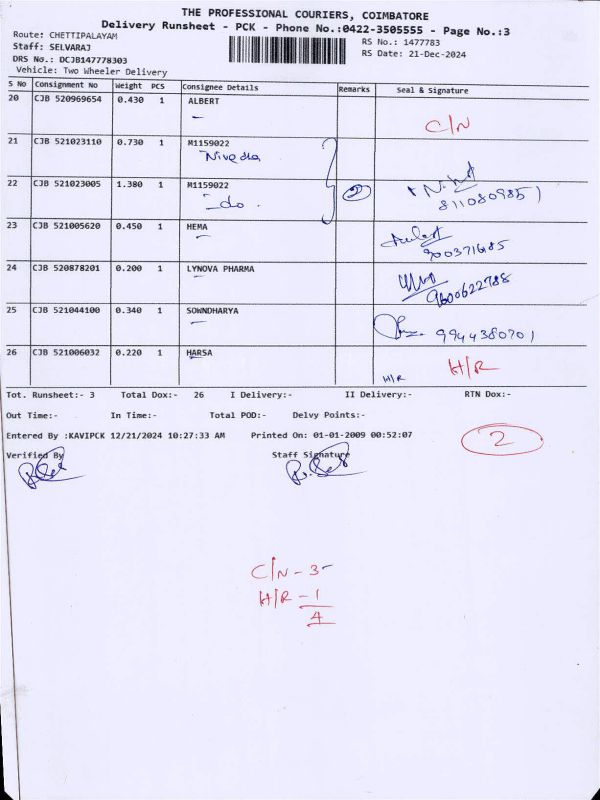 THE PROFESSIONAL COURIERS, COIMBATORE
Delivery Runsheet - PCK - Phone No.:0422-3505555 - Page No.:3
Route: CHETTIPALAYAM
RS No.: 1477783
Staff: SELVARAJ
RS Date: 21-Dec-2024
DRS No.: DCJB147778303
Vehicle: Two Wheeler Delivery
S No Consignment No Weight PCS Consignee Details Remarks Seal & Signature
20 CJB 520969654 0.430 1 ALBERT
C/N
21 CJB 521023110 0.730 1 M1159022
Nivedha
22 CJB 521023005 1.380 1 M1159022
do. 2
23 CJB 521005620 0.450 1 HEMA
24 CJB 520878201 0.200 1 LYNOVA PHARMA
9600622788
25 CJB 521044100 0.340 1 SOWNDHARYA
9944380701
26 CJB 521006032 0.220 1 HARSA
H/R H/R
Tot. Runsheet:- 3 Total Dox:- 26 I Delivery:- II Delivery:- RTN Dox:-
Out Time:- In Time:- Total POD:- Delvy Points:-
Entered By :KAVIPCK 12/21/2024 10:27:33 AM Printed On: 01-01-2009 00:52:07
2
Verified By Staff Signature
C/N - 3
H/R - 1
4